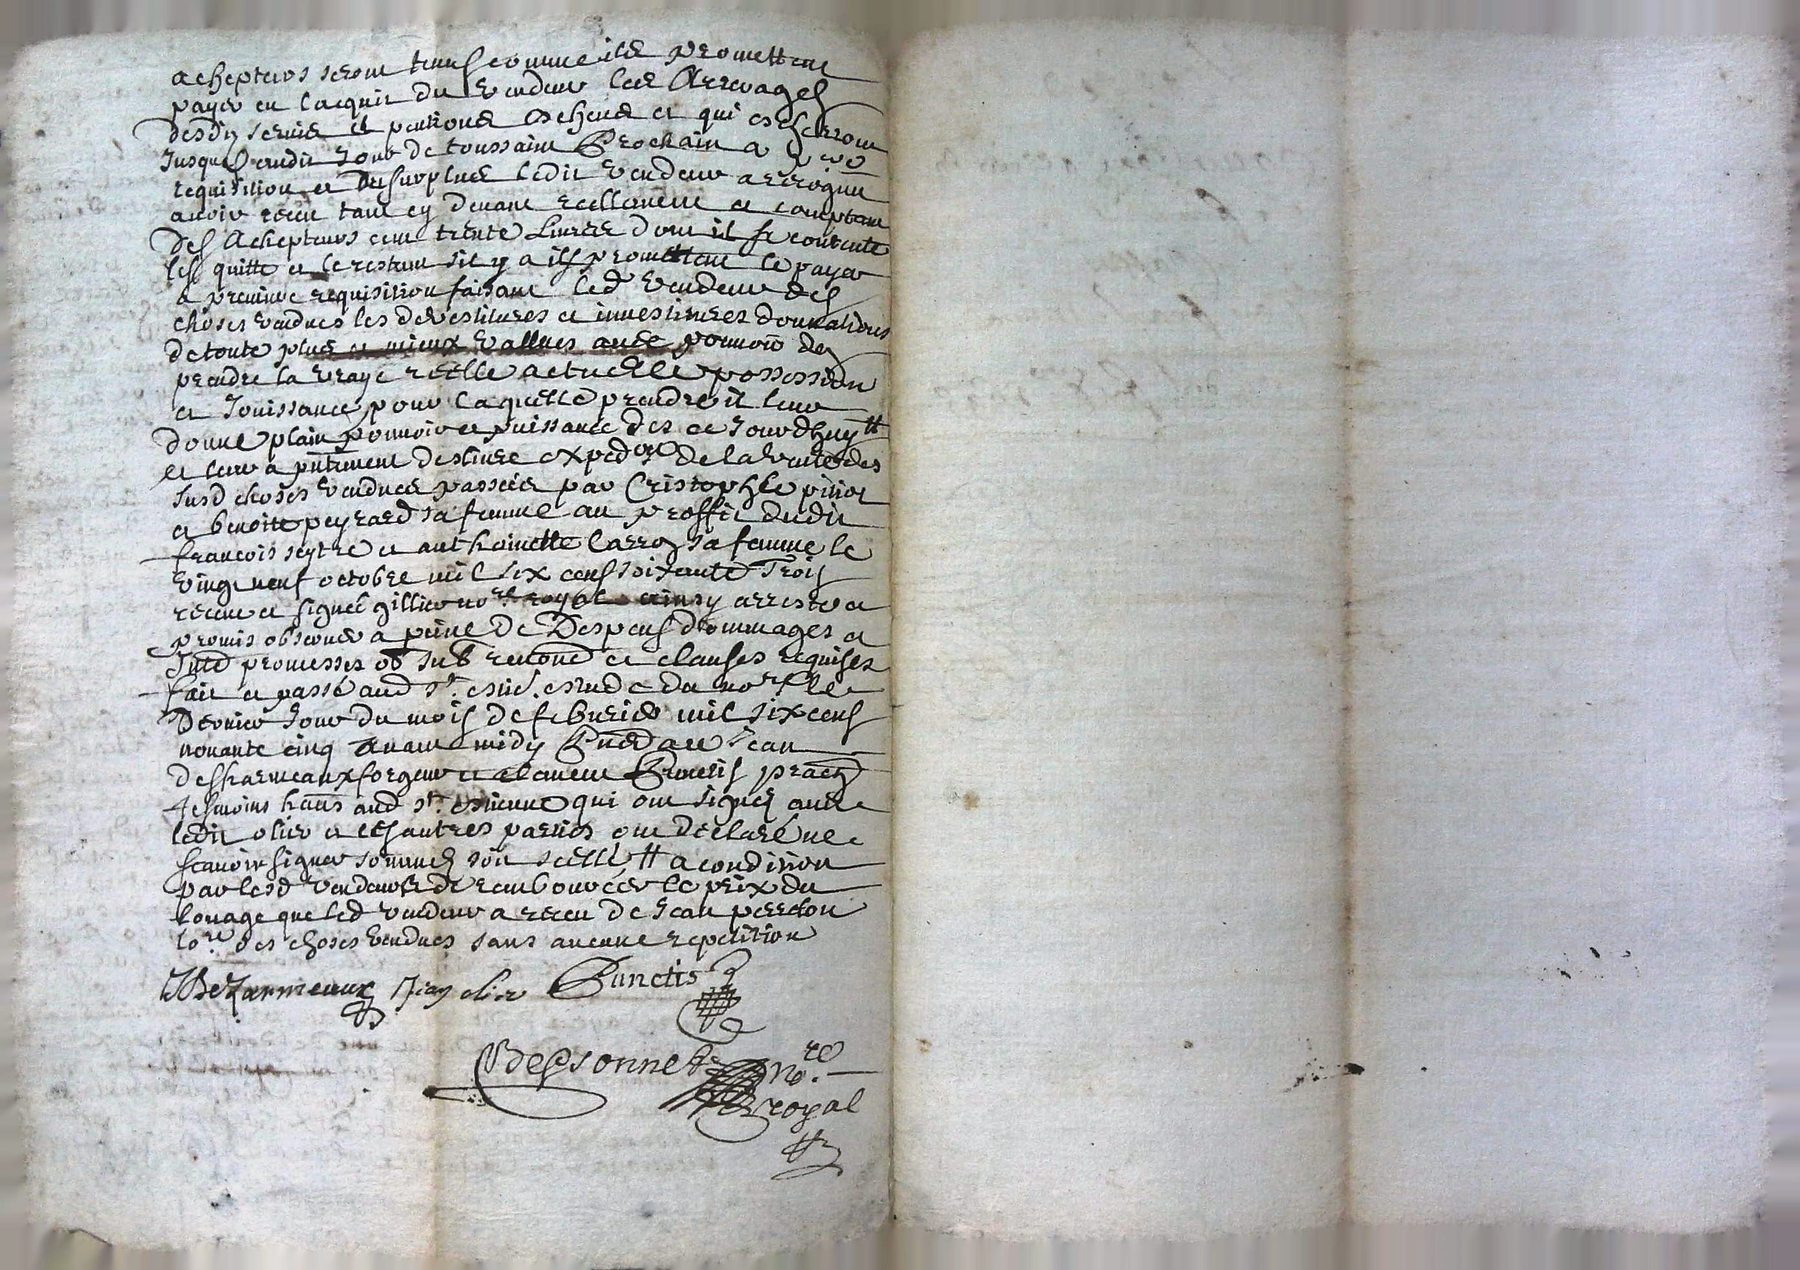 achepteurs seront tenus comme ils promettent
payer en lacquit du vendeur les Arrerages
desd servis et pentions escheus et qui escherront
Jusques audit Jour de toussaint Prochain a
requisition et du surplus ledit vendeur a
avoir receu tant cy devant reellement et comptant
des Achepteurs cent trente Livres dont il se contente
les quitte et le restant sil y a ils promettent le payer
a premiere requisition faisant led vendeur des
choses vendues les devestitures et investitures donnations
de toute plus et mieux vallues avec pouvoir den
prendre la vraye reelle actuelle possession
et Jouissance pour laquelle prendre il leur
donne plain pouvoir et puissance des ce Jourdhuy #
et leur a pntement deslivre expedon de la vente des
susd choses vendues passées par Cristophle pitiot
et benoitte peyrard sa femme au proffit dudit
francois seytre et anthoinette Carro sa femme le
vingt neuf octobre mil six cens soixante Trois
receue et signée gillier nore royal ainsy arresté et
promis observer a peine de Despens dommages et
Inted promesses ob sub renond et clauses requises
fait et passé aud st. estude du nore le
Dernier Jour du mois de febvrier mil six cens
nonante cinq avant midy Pnce de Jean
desharmeaux forgeur et clement Punctis pratn
Tesmoins hans aud st. estienne qui ont signé avec
ledit olier et les autres parties ont déclaré ne
scavoir signer sommés soit scellé # a condition
par lesd vendeurs de rembourcer le prix du
louage que led vendeur a receu de Jean perreton
lore des choses vendues sans aucune repetition
JDeZarmeaux Jean olier Punctis
Bessonnet nore
royal